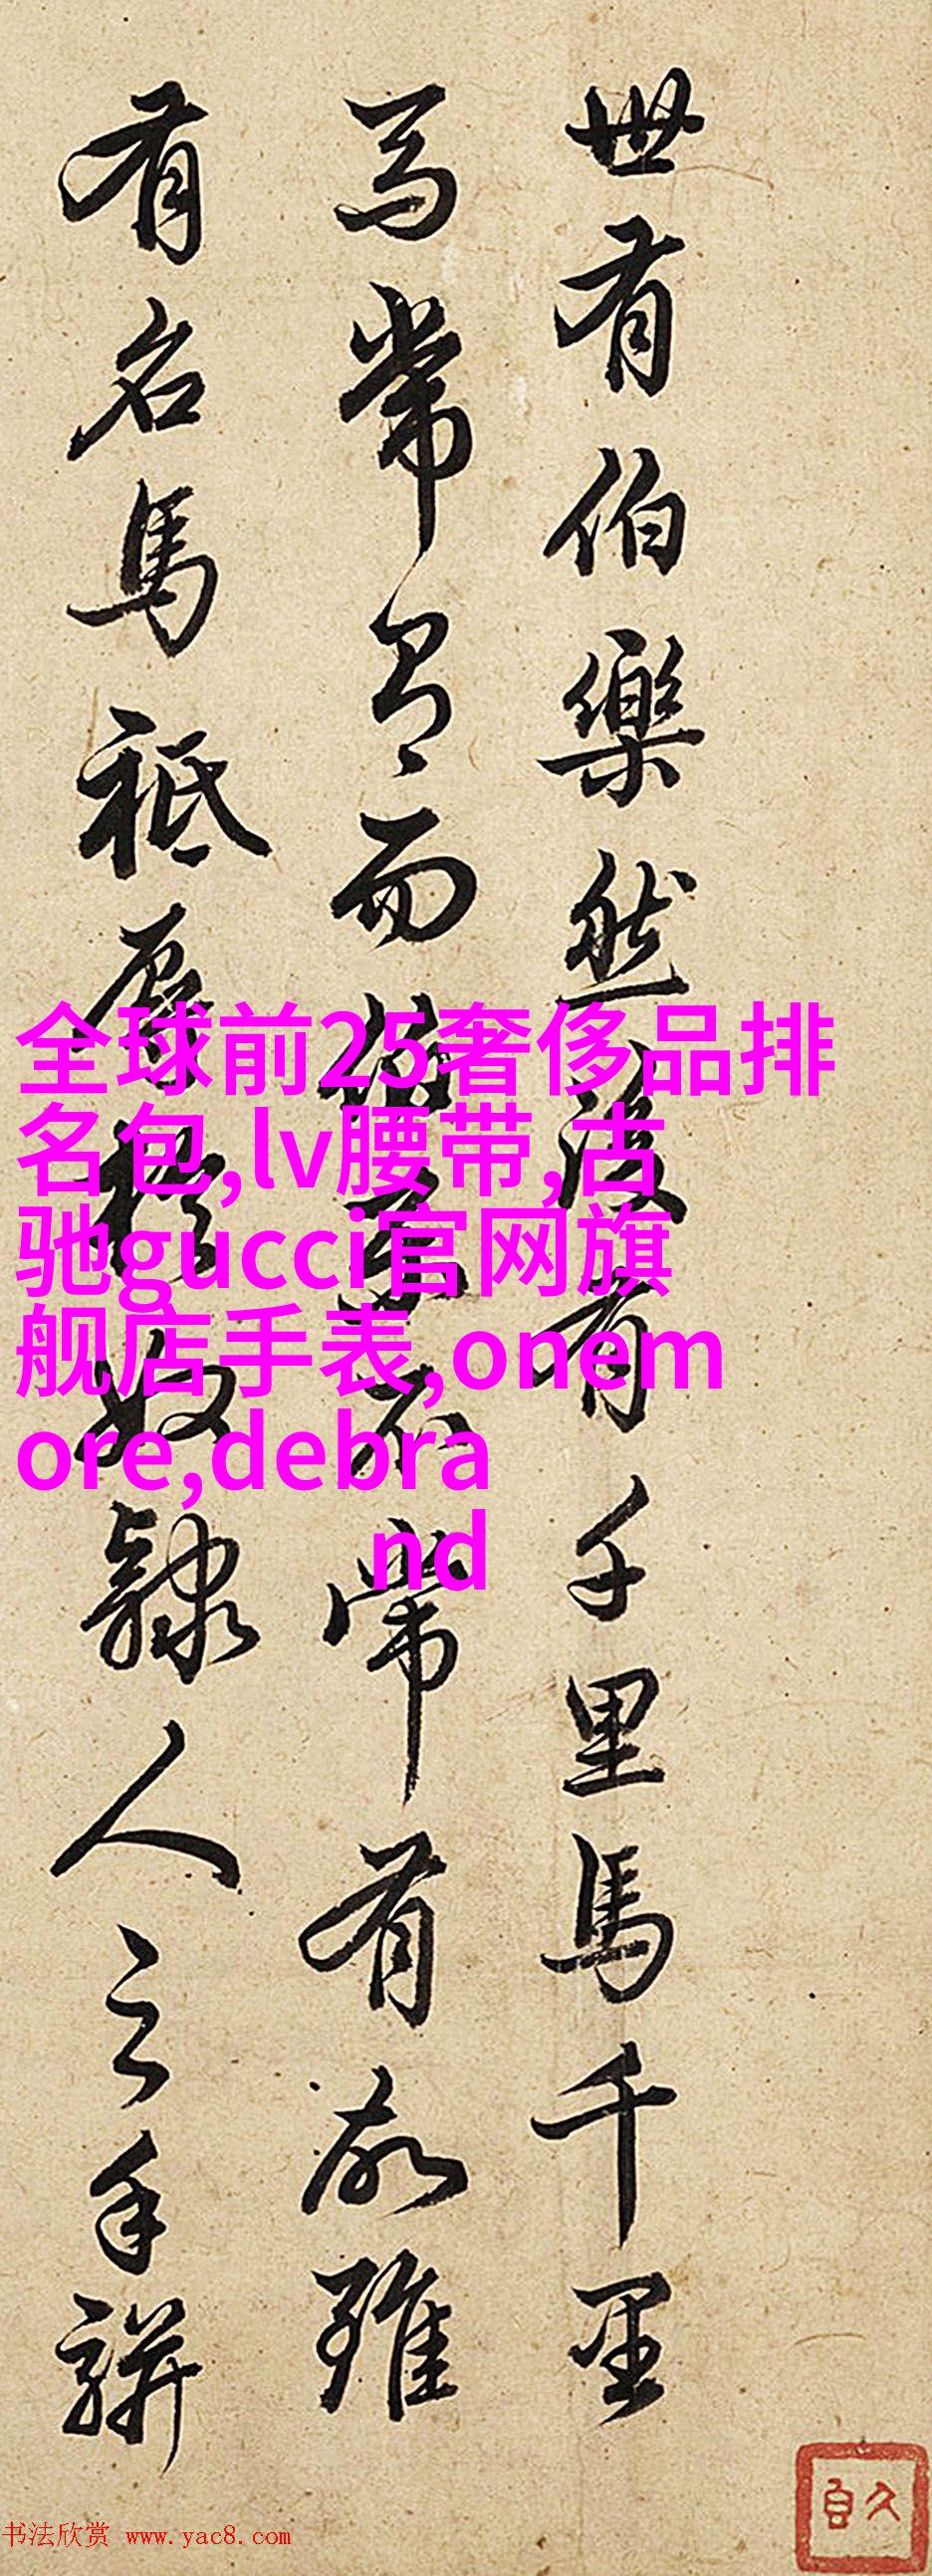 世有伯樂然後有千里馬千里
馬常有而伯樂不常有故雖
有名馬祗辱於奴隸人之手駢
全球前25奢侈品排
名包,lv腰带,古
驰gucci官网旗
舰店手表,onem
ore,debra
nd
书法欣赏 www.yac8.com